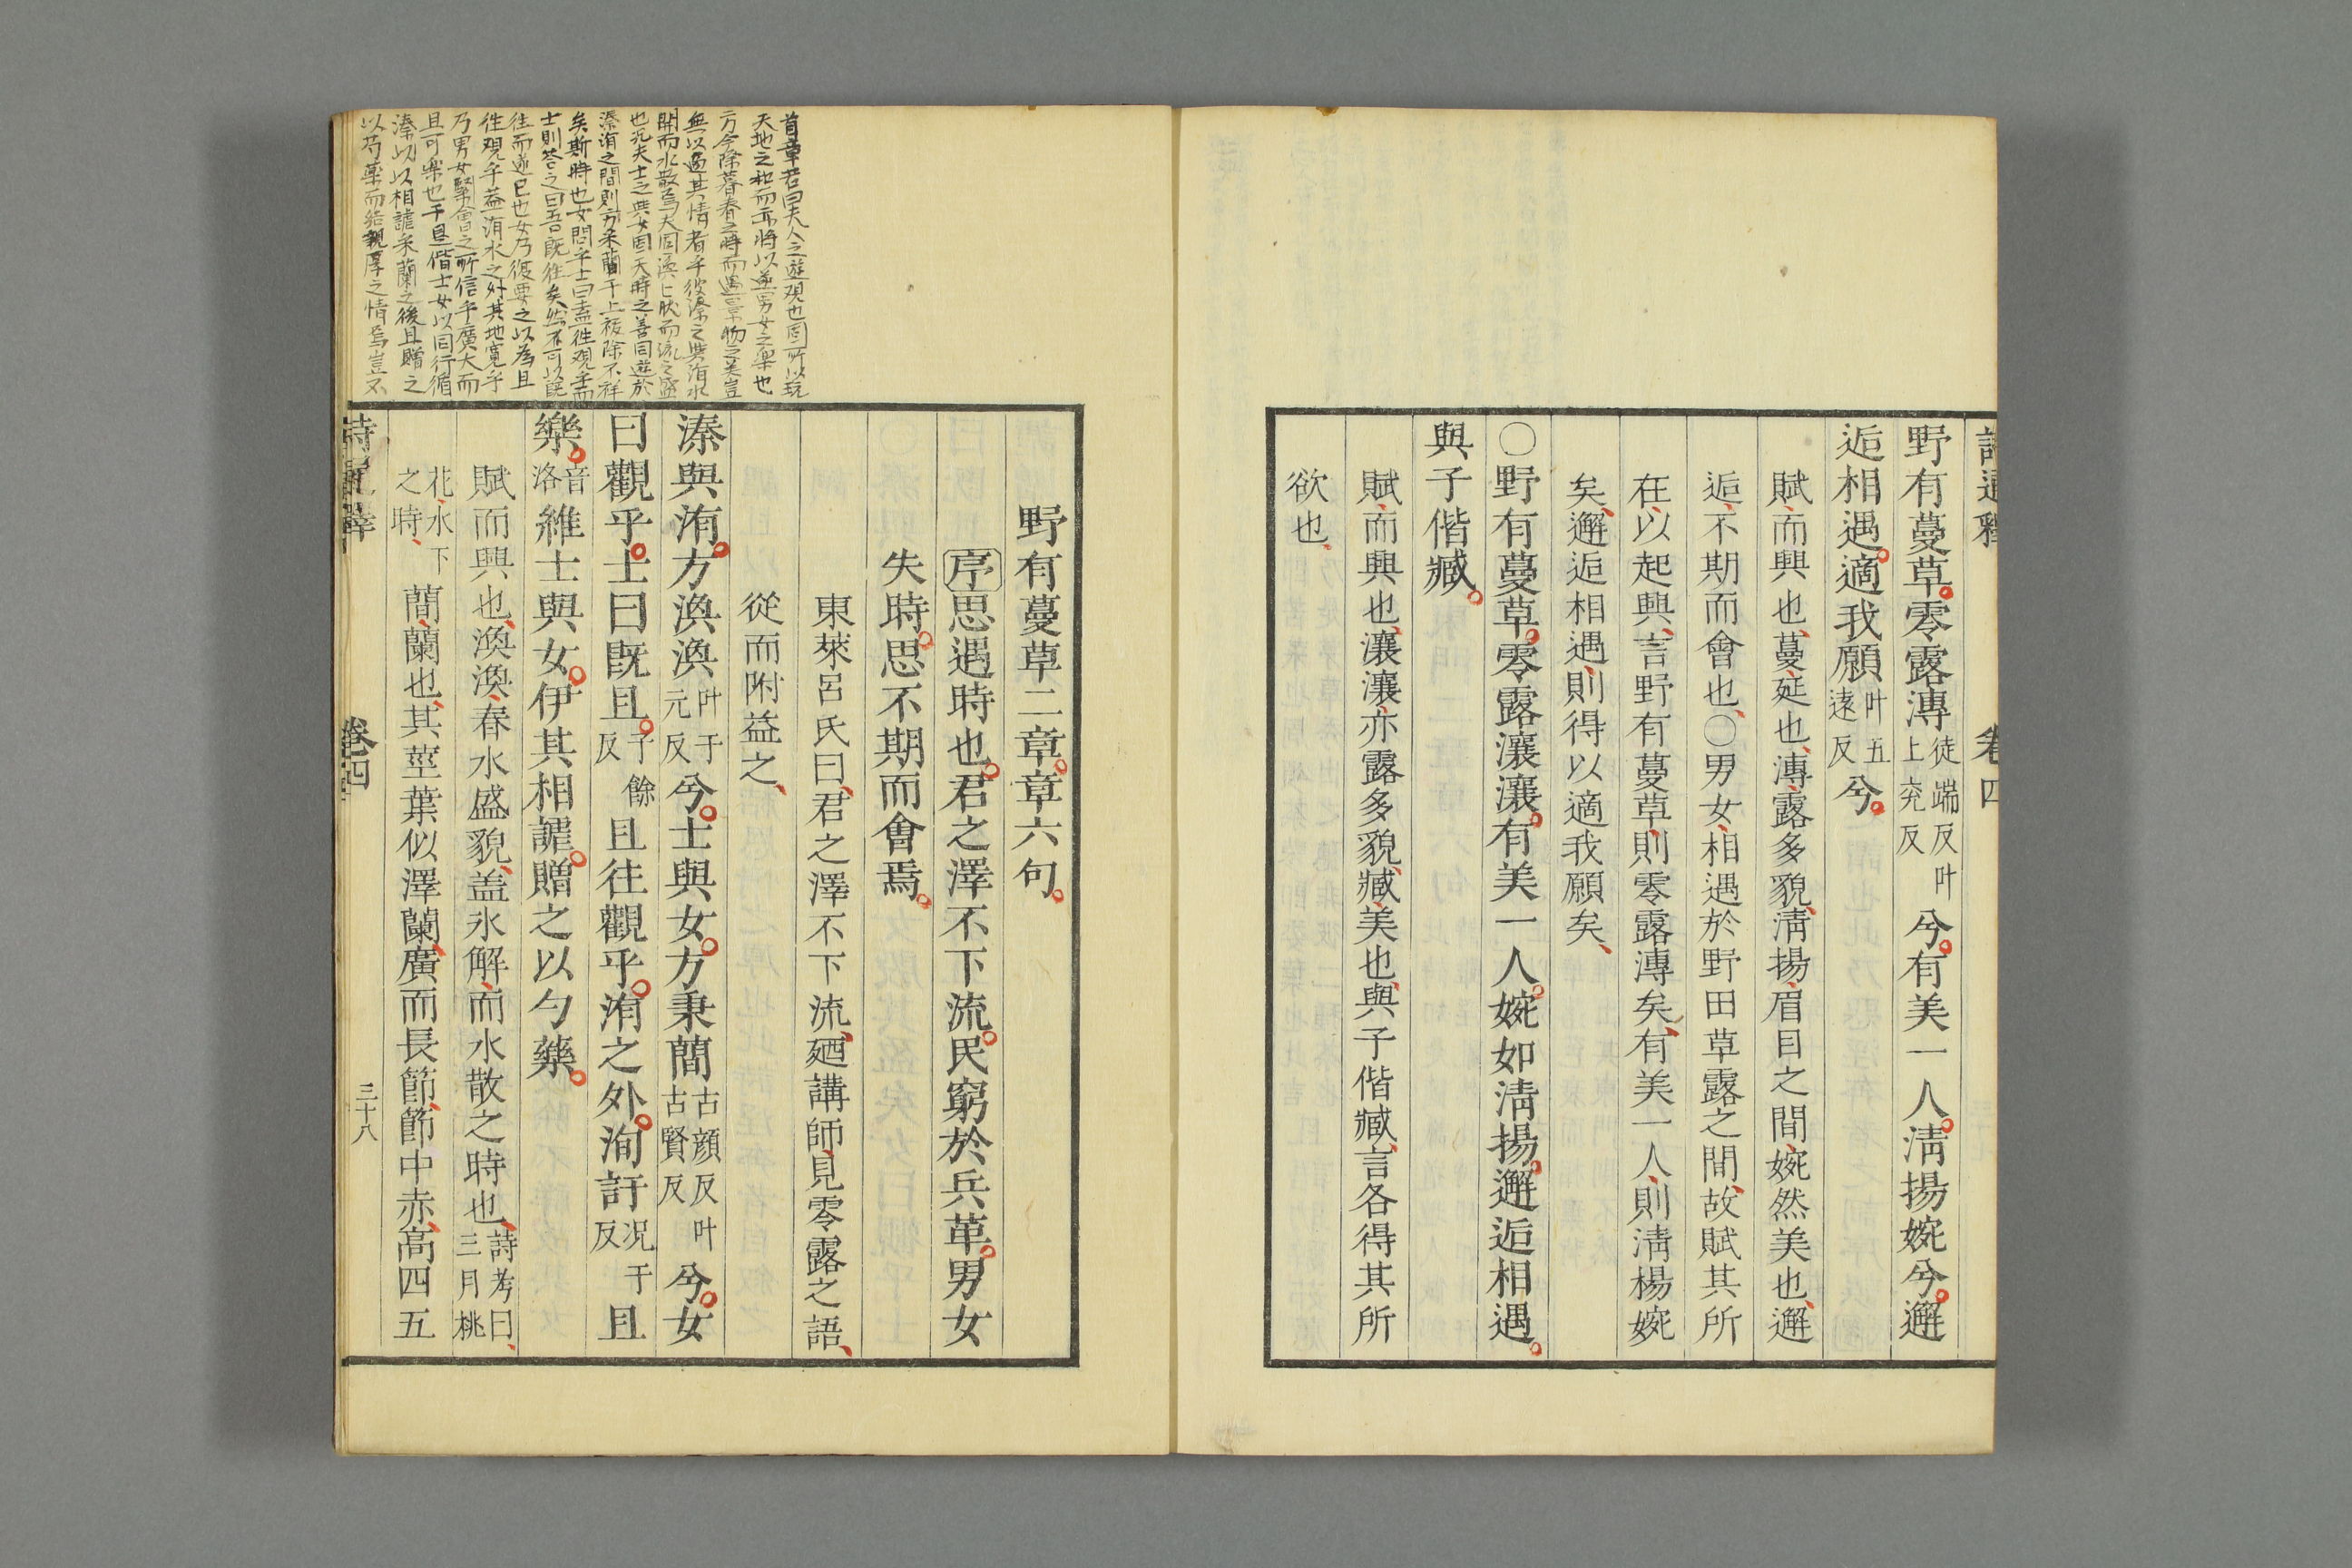 野有蔓草零露漙徒端反叶上兖反兮有美一人淸揚婉兮邂
逅相遇適我願叶五遠反兮
賦而興也蔓延也漙露多貌淸揚眉目之間婉然美也邂
逅不期而會也〇男女相遇於野田草露之間故賦其所
在以起興言野有蔓草則零露漙矣有美一人則淸楊婉
矣邂逅相遇則得以適我願矣
〇野有蔓草零露瀼瀼有美一人婉如淸揚邂逅相遇
與子偕臧
賦而興也瀼瀼亦露多貌臧美也與子偕臧言各得其所
欲也
野有蔓草二章章六句
序思遇時也君之澤不下流民窮於兵革男女
失時思不期而會焉
東萊呂氏曰君之澤不下流廼講師見零露之語
從而附益之
溱與洧方渙渙叶于元反兮士與女方秉蕑古顔反叶古賢反兮女
曰觀乎士曰旣且子餘反且往觀乎洧之外洵訏况于反且
樂音洛維士與女伊其相謔贈之以勺藥
賦而興也渙渙春水盛貌盖氷解而水散之時也詩考曰三月桃
花水下之時蕑蘭也其莖葉似澤蘭廣而長節節中赤高四五
卷四
三十八
首章若曰夫人之遊観也固所以玩
天地之和而亦将以遂男女之樂也
方今除暮春之時而遇景物之美豈
無以適其情者乎彼溱之與洧水
開而水散焉大固渙〻狀而流之盛
也況夫士之與女因天時之善同遊於
溱洧之間則方釆蕑于上祓除不祥
矣斯時也女問乎士曰盍往観乎而
士則答之曰吾既往矣然不可以既
往而遂已也女乃復要之以為且
往観乎益洧水之外其地寛乎
乃男女聚會之所信乎廣大而
且可樂也于是偕士女以同行循
溱以以相謔釆蘭之後且贈之
以芍薬而結親厚之情焉豈不